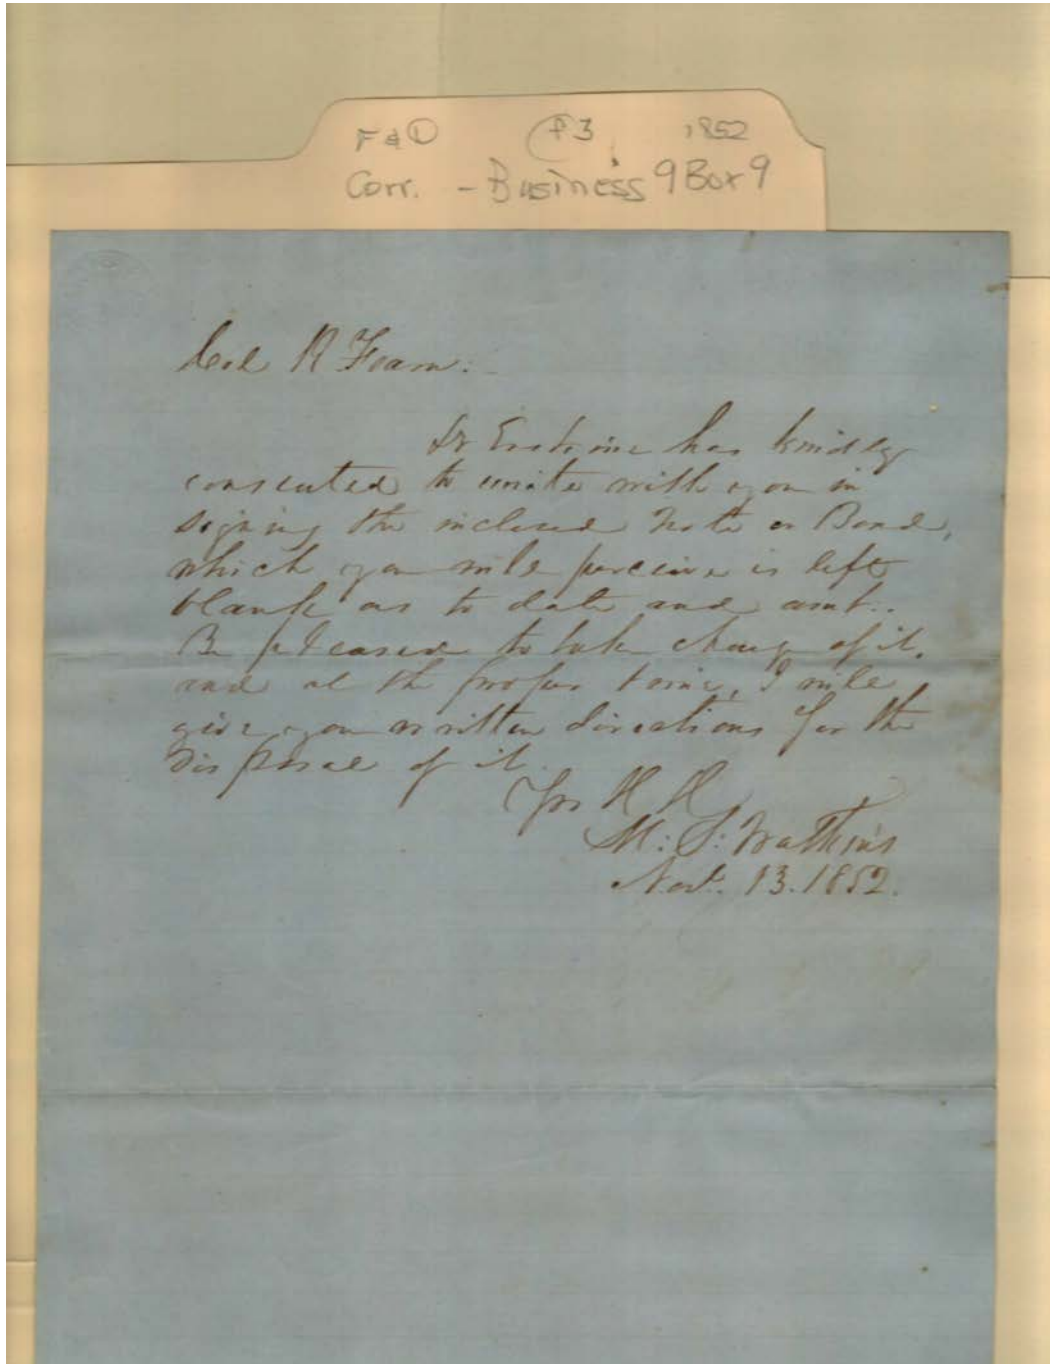 F & D f 3 1852
Corr. - Business 9 Box 9
Col R Fearn:
Dr Erskine has kindly
consented to unite with you in
signing the inclosed Note or Bond,
which you will perceive is left
blank as to date and amt..
Be pleased to take charge of it,
and at the proper time, I will
give you written directions for the
disposal of it.
Yrs
M: S: Watkins
Novr. 13. 1852.